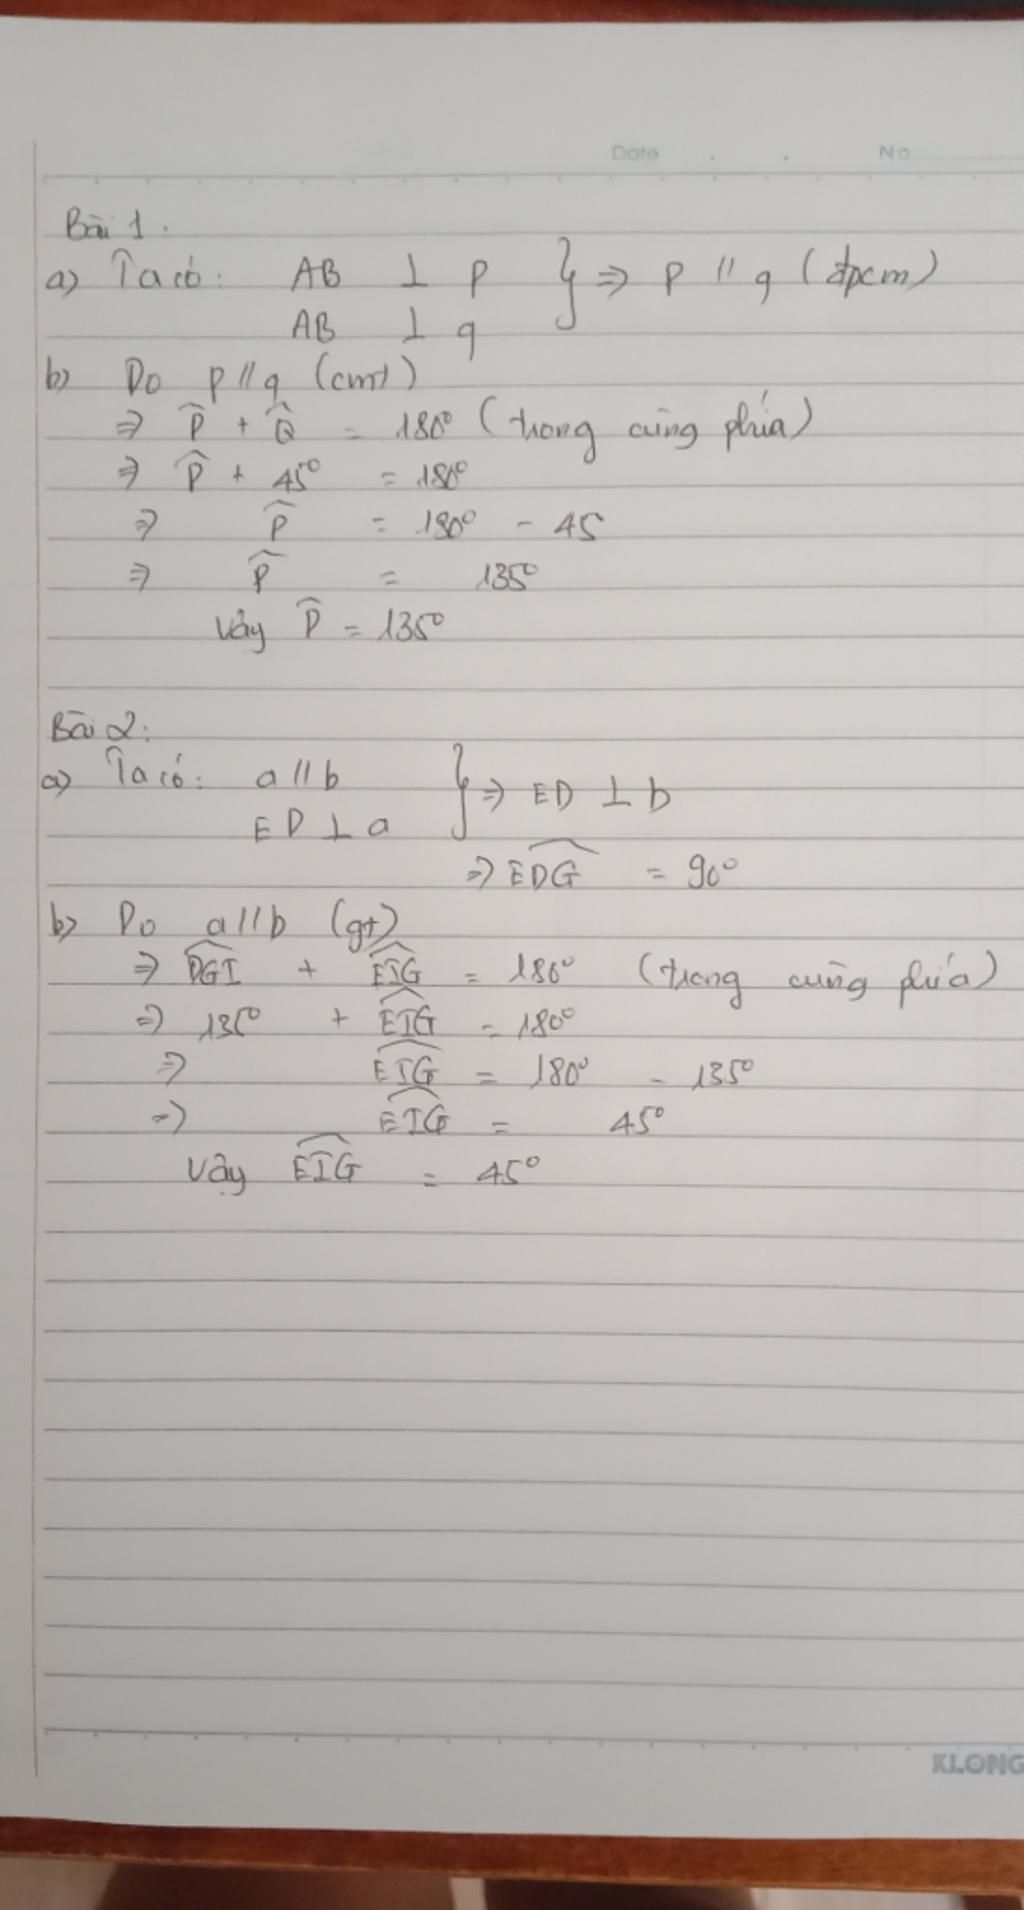 Date . . No
Bài 1.
a) Ta có: AB ⊥ p } ⇒ p // q (đpcm)
AB ⊥ q
b) Do p // q (cmt)
⇒ P̂ + Q̂ = 180° (trong cùng phía)
⇒ P̂ + 45° = 180°
⇒ P̂ = 180° - 45
⇒ P̂ = 135°
Vậy P̂ = 135°
Bài 2:
a) Ta có: a // b } ⇒ ED ⊥ b
ED ⊥ a
⇒ \widehat{EDG} = 90°
b) Do a // b (gt)
⇒ \widehat{DGI} + \widehat{EIG} = 180° (trong cùng phía)
⇒ 135° + \widehat{EIG} = 180°
⇒ \widehat{EIG} = 180° - 135°
⇒ \widehat{EIG} = 45°
Vậy \widehat{EIG} = 45°
KLONG